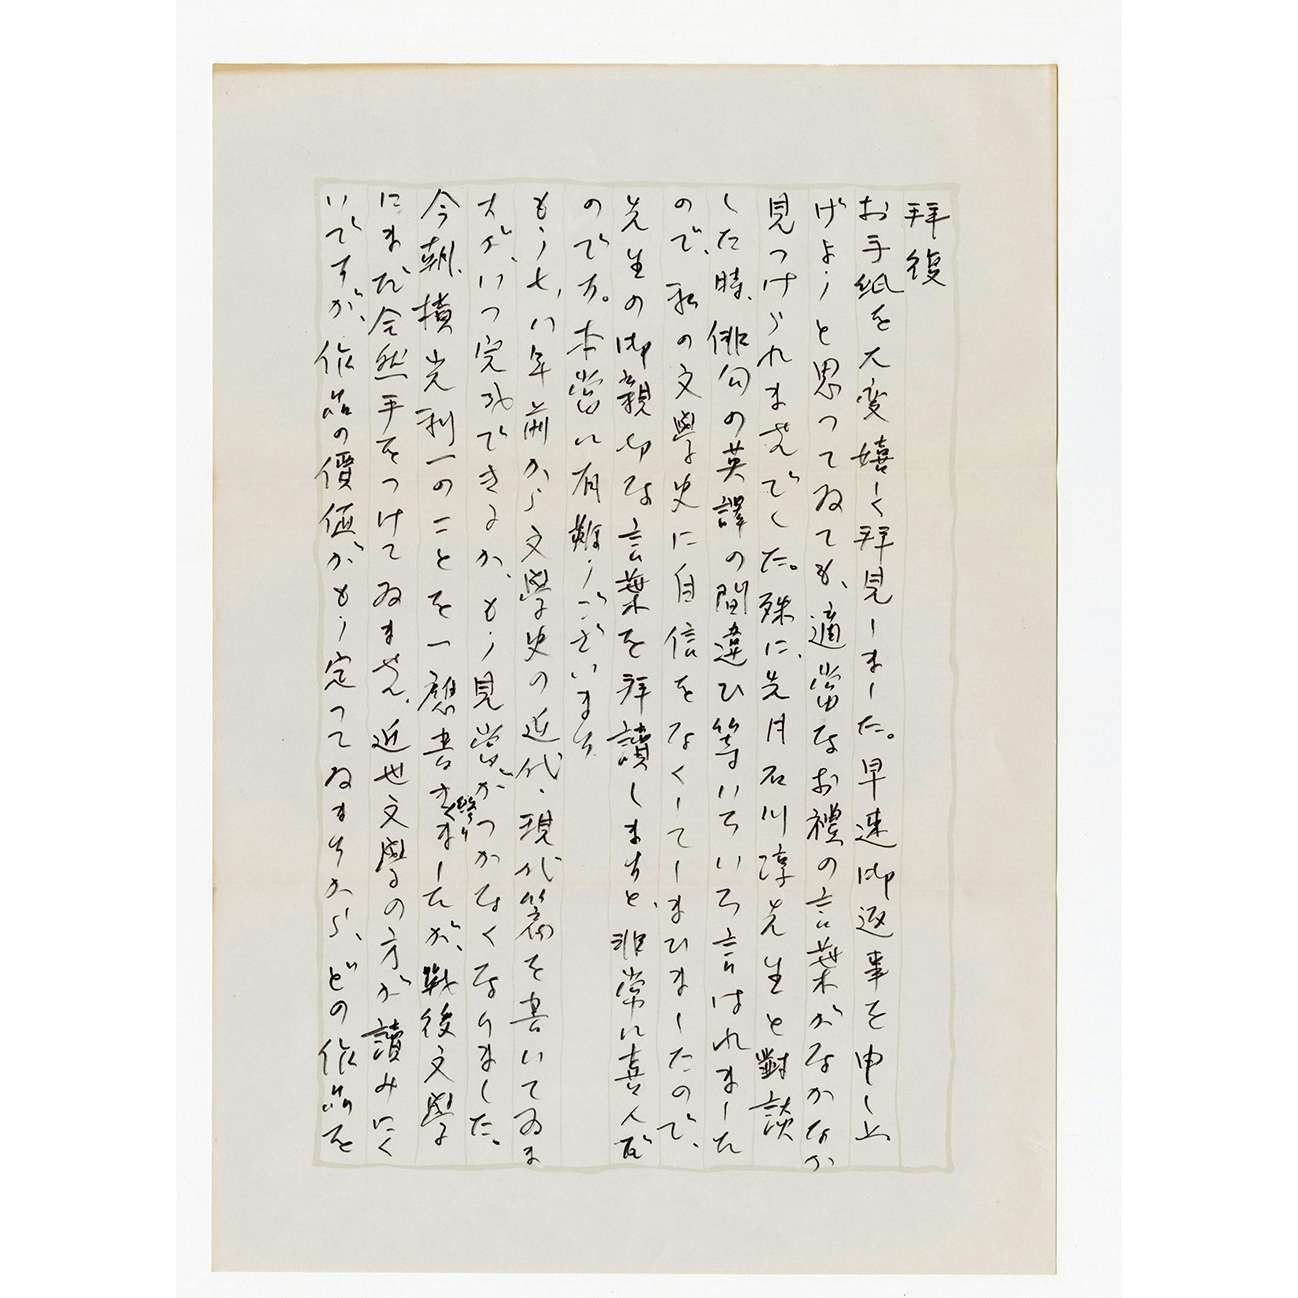 拝復
お手紙を大変嬉しく拝見しました。早速御返事を申し上
げようと思ってゐても、適當なお禮の言葉がなかなか
見つけられませんでした。殊に、先月石川淳先生と對談
した時、俳句の英譯の間違ひ等いろいろ言はれました
ので、私の文學史に自信をなくしてしまひましたので、
先生の御親切な言葉を拝讀しますと、非常に喜んだ
のです。本當に有難うございます
もう七、八年前から文學史の近代・現代篇を書いてゐま
すが、いつ完成できるか、もう見當がつかなくなりました。
今朝、横光利一のことを一應書き終りましたが、戦後文學
にまだ全然手をつけてゐません。近世文學の方が讀みにく
いですが、作品の價値がもう定ってゐますから、どの作品を